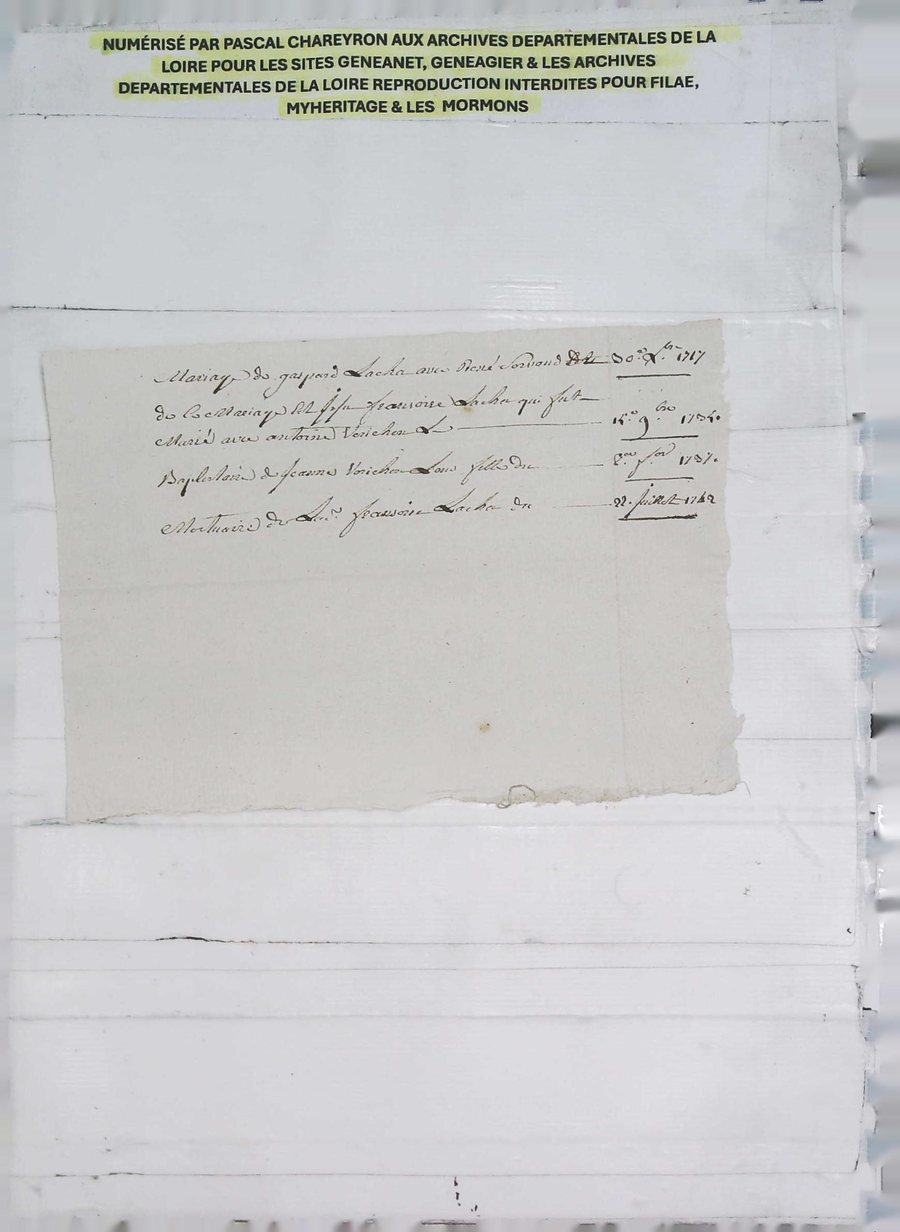 NUMÉRISÉ PAR PASCAL CHAREYRON AUX ARCHIVES DEPARTEMENTALES DE LA
LOIRE POUR LES SITES GENEANET, GENEAGIER & LES ARCHIVES
DEPARTEMENTALES DE LA LOIRE REPRODUCTION INTERDITES POUR FILAE,
MYHERITAGE & LES MORMONS
Mariage de gaspard Lacha avec René 30 1717
de ce Mariage Est françoise Lacha qui fut
Marié avec antoine Verichon Le 9.bre
Baptistaire de Jeanne Verichon Leur fille du 1737.
Mortuaire de françoise Lacha du 22. Juillet 1742